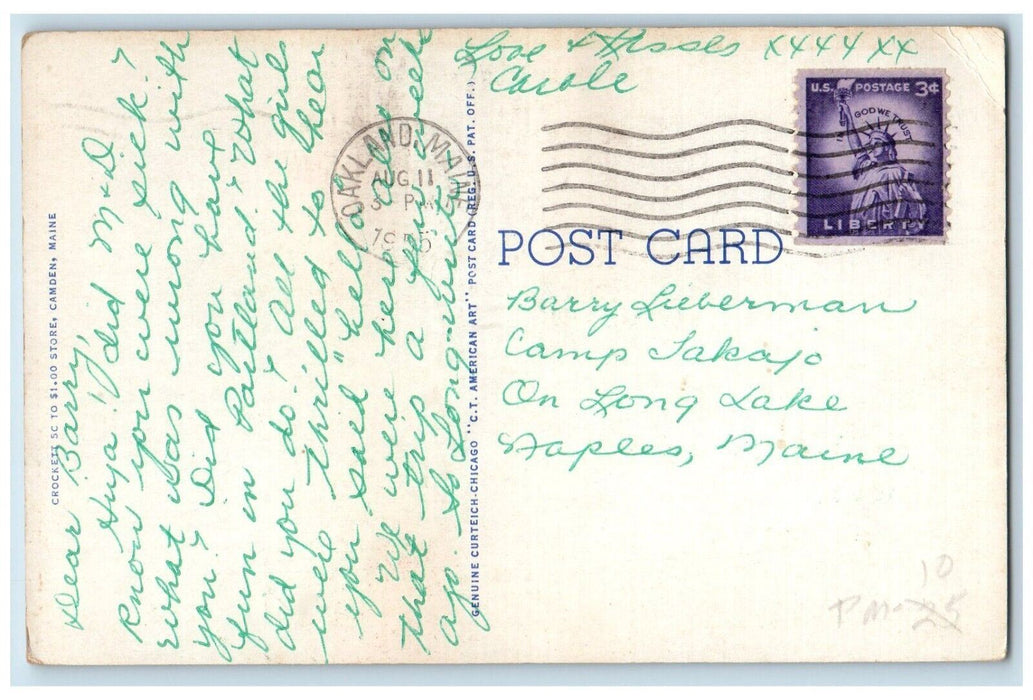 Dear Barry,
Hiya! Did M & D
know you were sick?
What was wrong with
you? Did you have
fun in Portland? What
did you do? All the girls
were thrilled to hear
you said "hello" all.
We were here also on
that trip a few weeks
ago. So Long - write
Love & Kisses xxxx xx
Carole
CROCKETT 5C TO $1.00 STORE, CAMDEN, MAINE
GENUINE CURTEICH-CHICAGO "C.T. AMERICAN ART" POST CARD (REG. U.S. PAT. OFF.)
OAKLAND, MAINE
AUG 11
3 PM
1955
U.S. POSTAGE 3¢
IN GOD WE TRUST
LIBERTY
POST CARD
Barry Lieberman
Camp Takajo
On Long Lake
Naples, Maine
10
PM-25